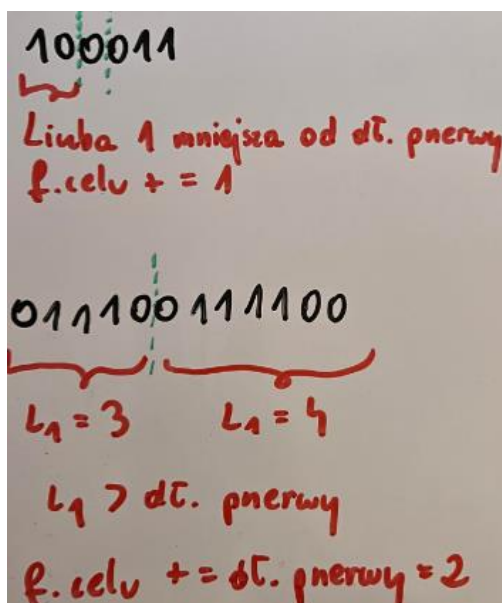 100011
Liczba 1 mniejsza od dł. przerwy
f. celu += 1
011100111100
L₁ = 3 L₁ = 4
L₁ > dł. przerwy
f. celu += dł. przerwy = 2